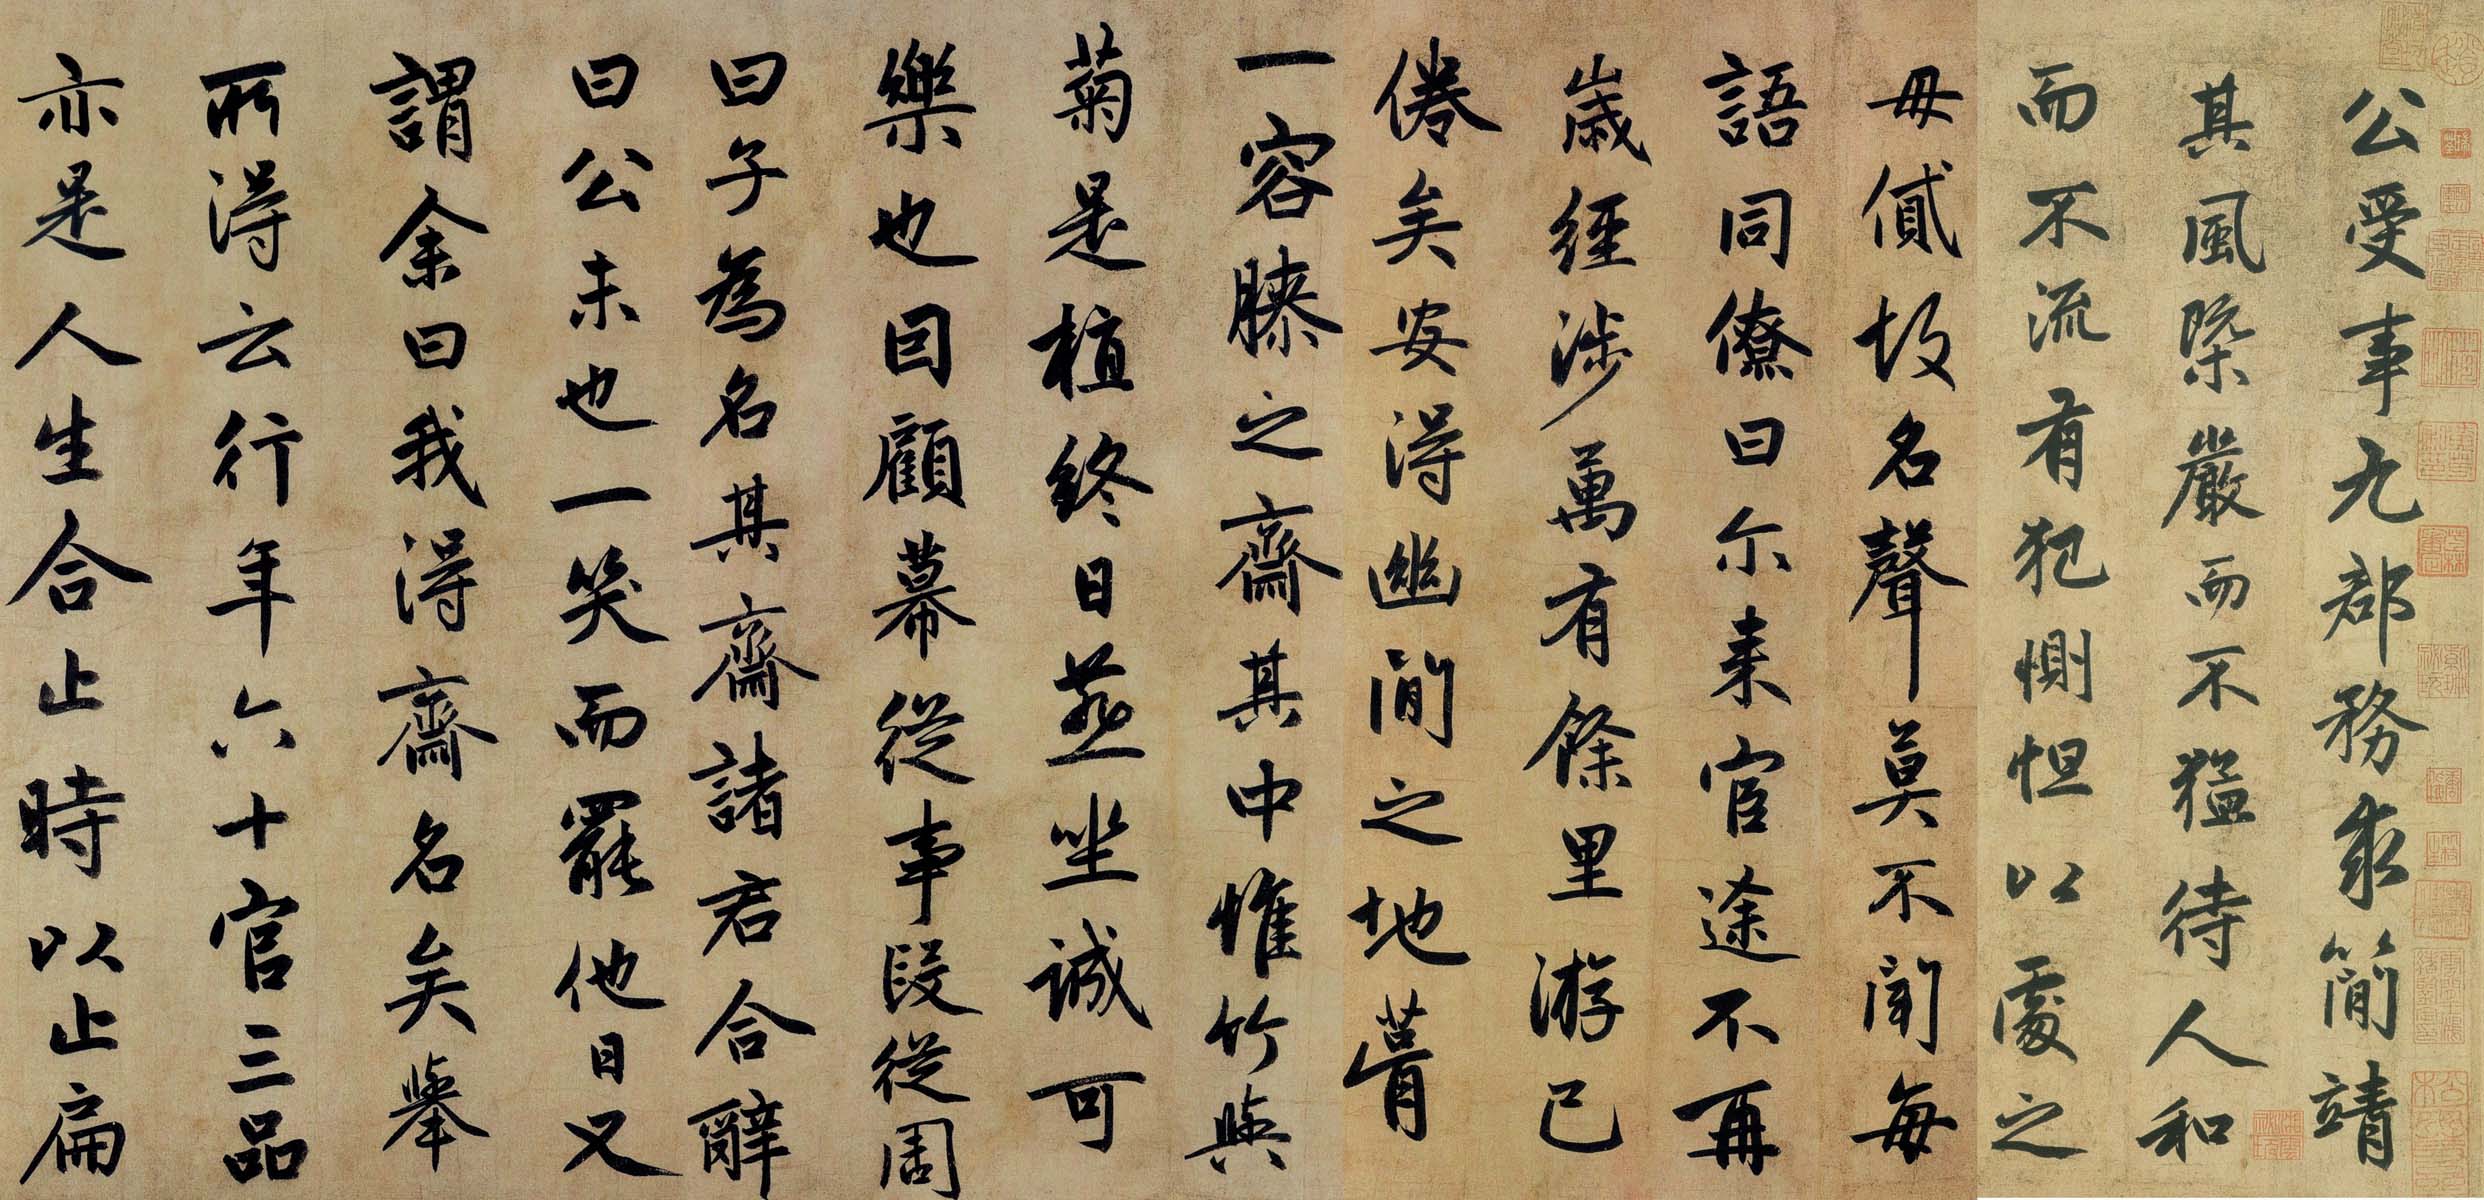 公受事九郡務求簡靖
其風槩嚴而不猛待人和
而不流有犯惻怛以處之
毋貣故名聲莫不聞每
語同僚曰尓来官途不再
歲經涉萬有餘里游已
倦矣安得幽閒之地葺
一容膝之齋其中惟竹與
菊是植終日燕坐誠可
樂也囙顧幕從事段從周
曰子為名其齋諸君合辭
曰公未也一笑而罷他日又
謂余曰我得齋名矣舉
所得云行年六十官三品
亦是人生合止時以止扁